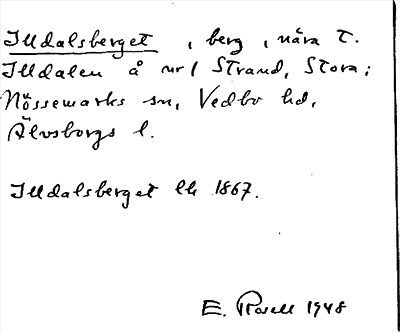 Illdalsberget, berg, nära t.
Illdalen å nr 1 Strand, Stora;
Nössemarks sn, Vedbo hd,
Älvsborgs l.
Illdalsberget lk 1867.
E. Rosell 1948